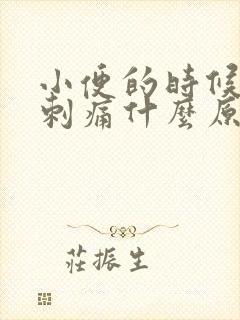 小便的時候
刺痛什麼原
莊振生